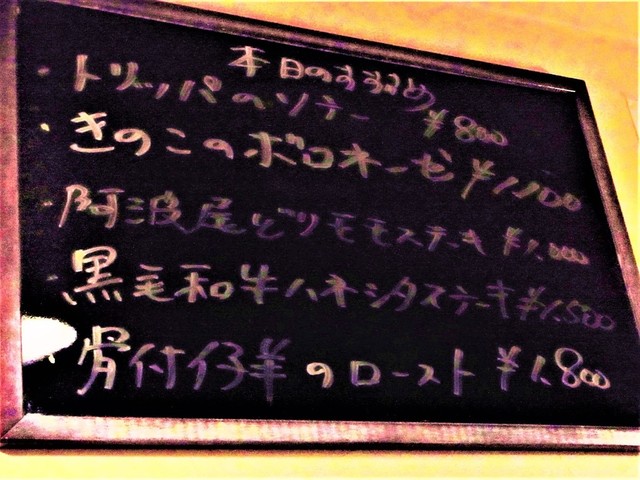 本日のすすめ
・トリッパのソテー ¥800
・きのこのボロネーゼ ¥1,100
・阿波尾どりモモステーキ ¥1,000
・黒毛和牛ハネシタステーキ ¥1,500
・骨付仔羊のロースト ¥1,800